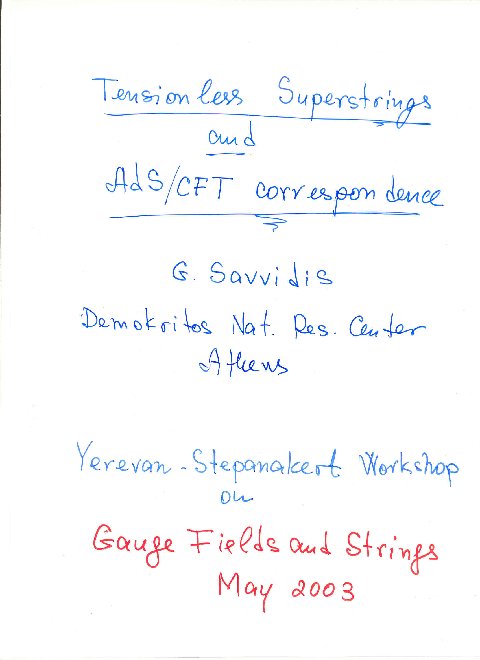 Tensionless Superstrings
and
AdS/CFT correspondence
G. Savvidis
Demokritos Nat. Res. Center
Athens
Yerevan - Stepanakert Workshop
on
Gauge Fields and Strings
May 2003